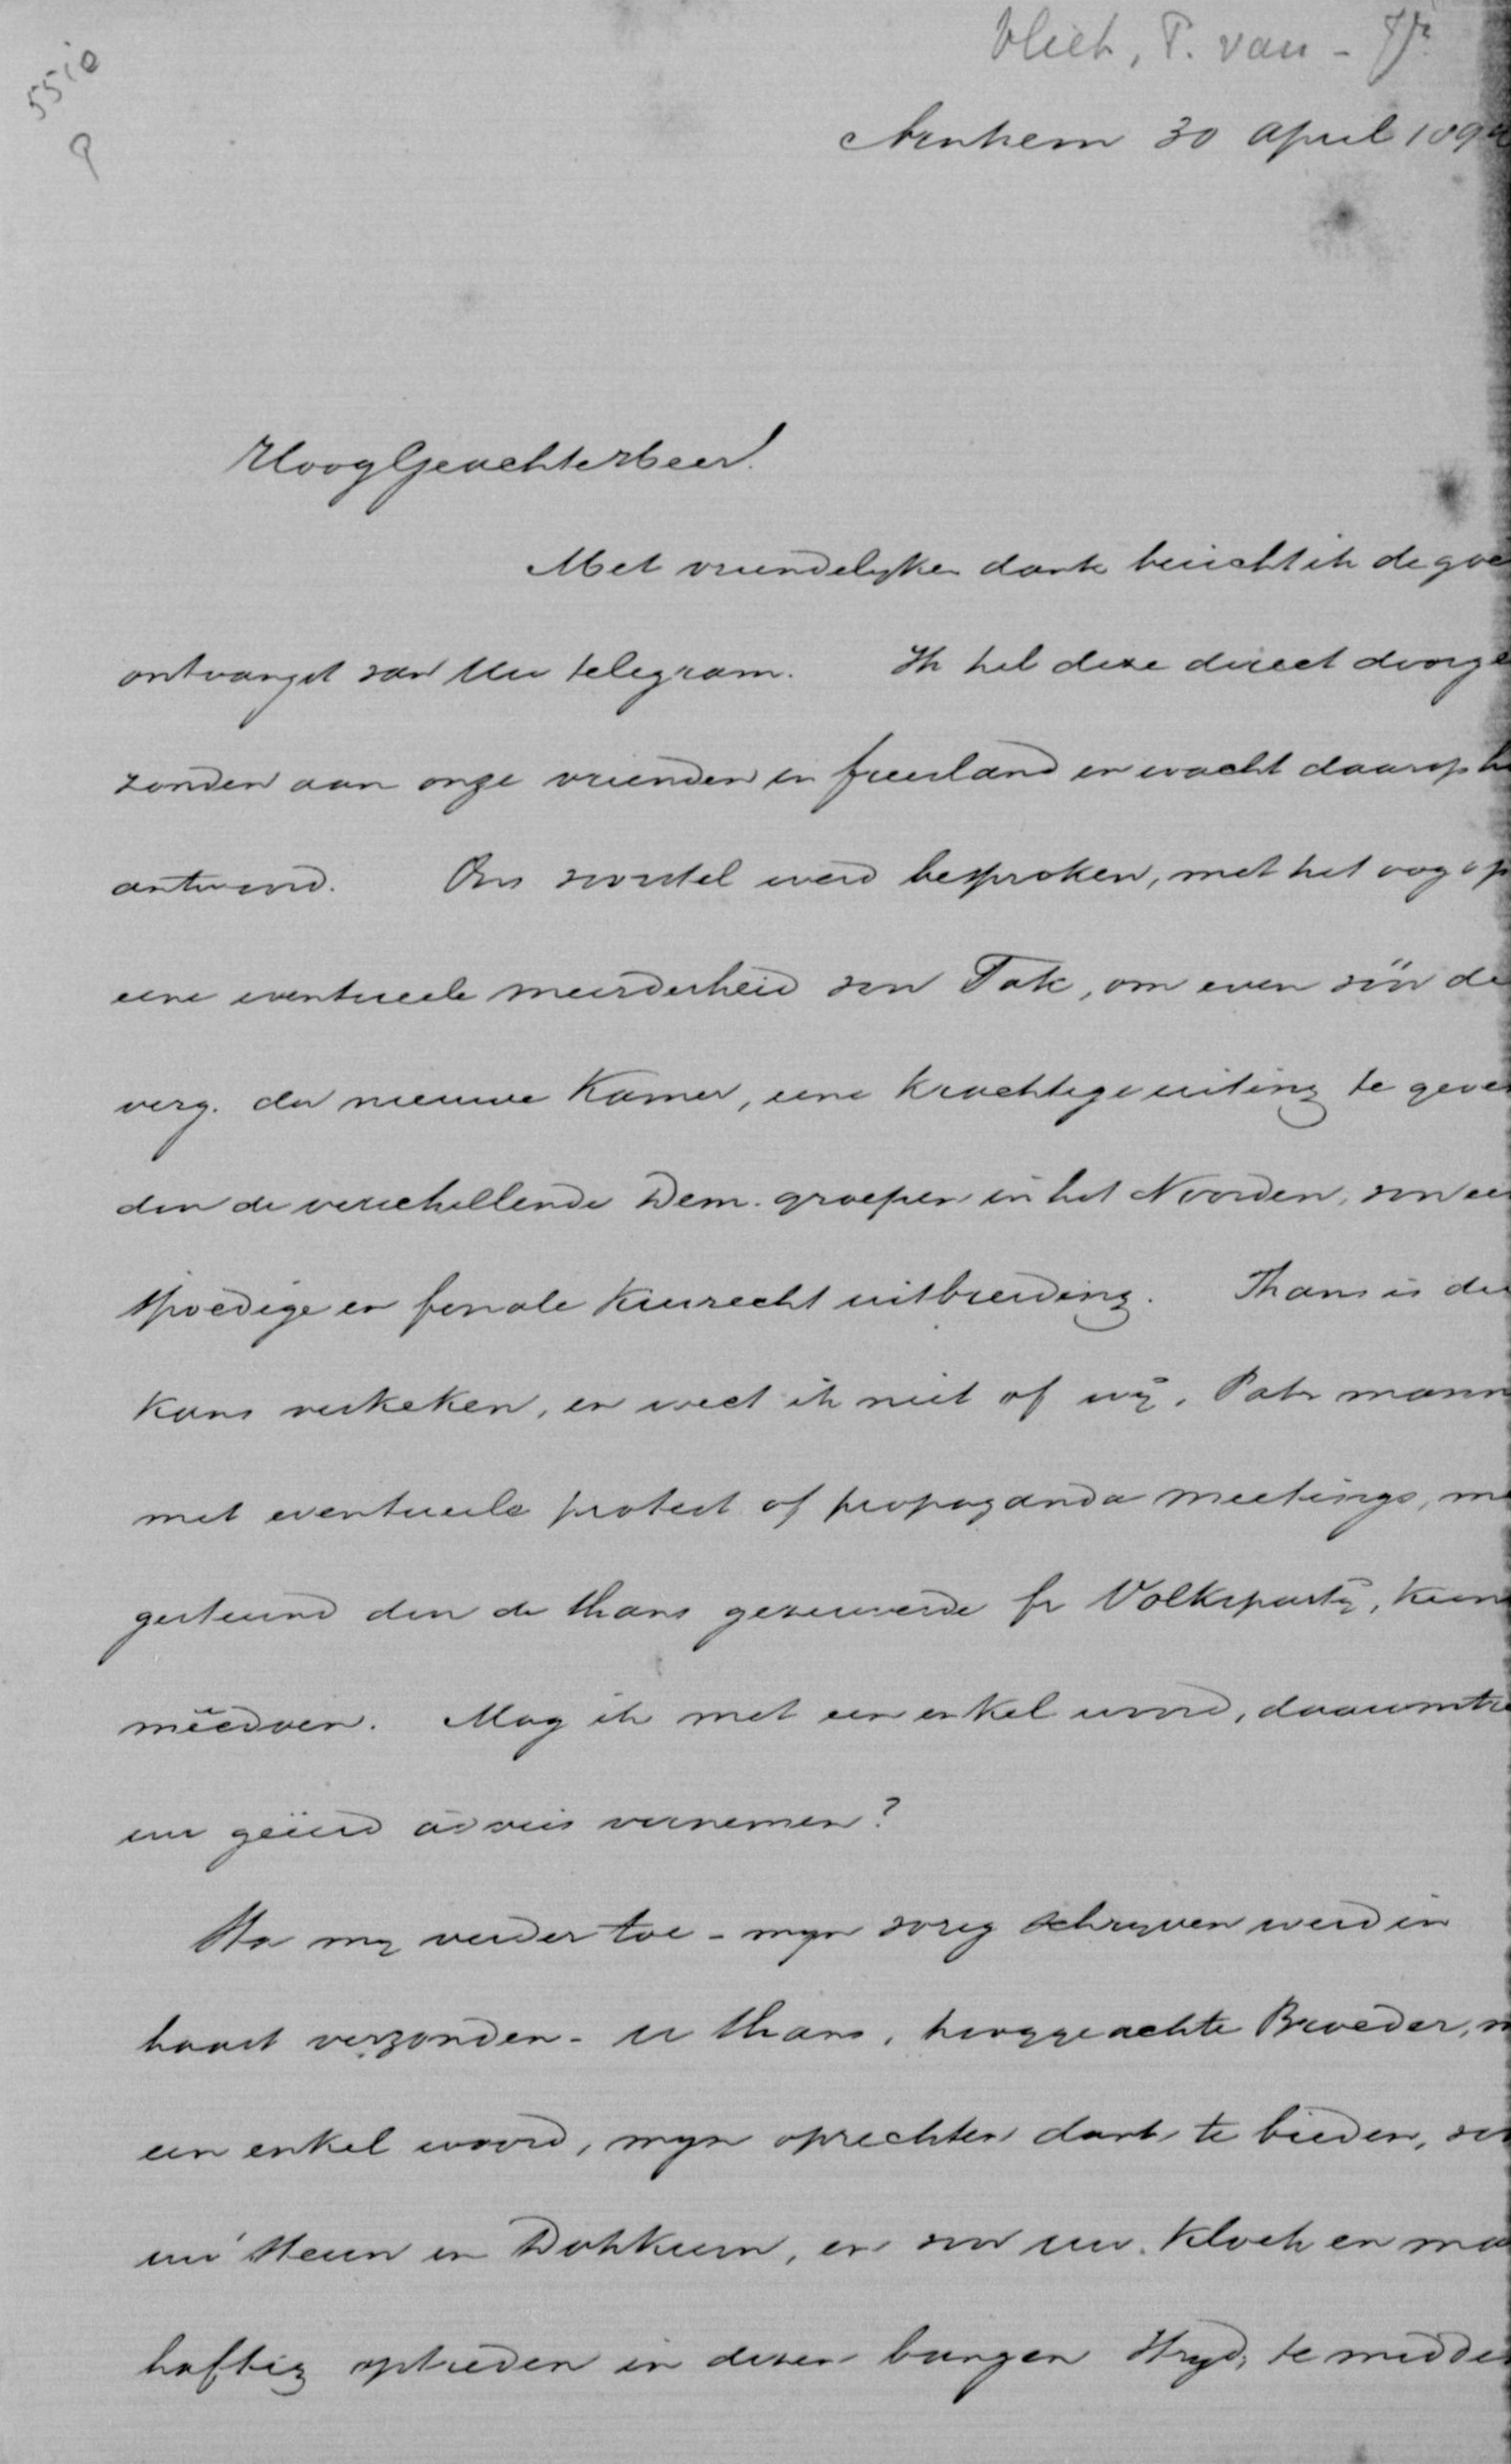 Vliet, P. van - Jr.
5510
P
Arnhem 30 April 189
HoogGeachteHeer!
Met vriendelyken dank bericht ik de goe
ontvangst van Uw telegram. Ik heb deze direct doorge
zonden aan onze vrienden in Friesland en wacht daarop h
antwoord. Ons voorstel werd besproken, met het oog op
eene eventueele meerderheid voor Tak, om even vóór de
verg. der nieuwe Kamer, eene krachtige uiting te geven
door de verschillende Dem. groepen in het Noorden, voor een
spoedige en finale Kiesrecht uitbreiding. Thans is de
kans verkeken, en weet ik niet of wij, Patr mann
met eventueele protest of propaganda meetings, me
gesteund door de thans gezuiverde fr Volkspartij, kunn
méedoen. Mag ik met een enkel woord, daaromtre
uw geëerd advies vernemen?
Sta my verder toe - myn vorig schryven werd in
haast verzonden - U thans, hooggeachte Broeder, m
een enkel woord, myn oprechten dank te bieden, vo
uw steun in Dokkum, en voor uw kloek en ma
haftig optreden in dezen bangen stryd, te midde